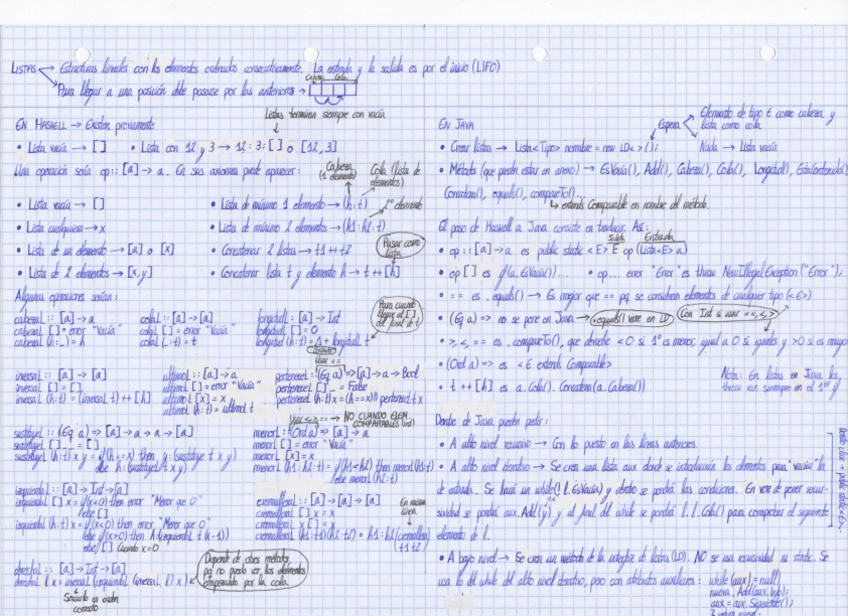 LISTAS → Estructuras lineales con los elementos ordenados consecutivamente. La entrada y la salida es por el inicio (LIFO)
Para llegar a una posición debe pasarse por las anteriores →
Cabeza Cola
Listas terminan siempre con vacía
EN HASKELL → Existen previamente
• Lista vacía → [ ] • Lista con 12 y 3 → 12:3:[ ] o [12,3]
Una operación sería op::[a]→a. En sus axiomas puede aparecer:
Cabeza (1 elemento)
Cola (lista de elementos)
• Lista vacía → [ ] • Lista de mínimo 1 elemento → (h:t)
2º elemento
• Lista cualquiera → x • Lista de mínimo 2 elementos → (h1:h2:t)
• Lista de un elemento → [a] o [x] • Concatenar 2 listas → t1 ++ t2
Pasar como lista
• Lista de 2 elementos → [x,y] • Concatenar lista t y elemento h → t ++ [h]
Algunas operaciones serían:
Para cuando llegue al [ ] del final de t
cabezaL :: [a] → a colaL :: [a] → [a] longitudL :: [a] → Int
cabezaL [ ] = error "Vacía" colaL [ ] = error "Vacía" longitudL [ ] = 0
cabezaL (h:_) = h colaL (_:t) = t longitudL (h:t) = 1 + longitudL t
Usar ==
inversaL :: [a] → [a] ultimoL :: [a] → a perteneceL :: (Eq a) => [a] → a → Bool
inversaL [ ] = [ ] ultimoL [ ] = error "Vacía" perteneceL [ ] _ = False
inversaL (h:t) = (inversaL t) ++ [h] ultimoL [x] = x perteneceL (h:t) x = (h==x) || perteneceL t x
ultimoL (h:t) = ultimoL t
Usar <,>,== → NO CUANDO ELEM. COMPARABLES (Int)
sustituyeL :: (Eq a) => [a] → a → a → [a] menorL :: (Ord a) => [a] → a
sustituyeL [ ] _ _ = [ ] menorL [ ] = error "Vacía"
sustituyeL (h:t) x y = if (h==x) then y:(sustituye t x y) menorL [x] = x
else h:(sustituyeL t x y) menorL (h1:h2:t) = if (h1<h2) then menorL (h1:t)
else menorL (h2:t)
izquierdaL :: [a] → Int → [a]
izquierdaL [ ] x = if (x<0) then error "Menor que 0" cremalleraL :: [a] → [a] → [a]
else [ ] cremalleraL [ ] x = x
En misma línea
izquierdaL (h:t) x = if (x<0) then error "Menor que 0" cremalleraL x [ ] = x
else if (x>0) then h:(izquierdaL t (x-1)) cremalleraL (h1:t1) (h2:t2) = h1:h2:(cremalleraL
else [ ] Cuando x=0 t1 t2)
derechaL :: [a] → Int → [a]
derechaL l x = inversaL (izquierdaL (inversaL l) x)
Depende de otros métodos pq no puedo ver los elementos empezando por la cola.
Sacarlo en orden correcto
EN JAVA
Espera
Elemento de tipo E como cabeza y lista como cola
Nada → Lista vacía
• Crear listas → Lista<Tipo> nombre = new LD< >();
• Métodos (que pueden estar en anexo) → EsVacia(), Add(), Cabeza(), Cola(), Longitud(), EstaContenido(),
Concatena(), equals(), compareTo()...
extends Comparable en nombre del método.
El paso de Haskell a Java consiste en traducir. Así:
Salida Entrada
• op :: [a] → a es public static <E> E op (Lista<E> a)
• op [ ] es if (a.EsVacia())... • op... error "Error" es throw New IllegalException ("Error");
• == es .equals() → Es mejor que == pq se consideran elementos de cualquier tipo (<E>)
• (Eq a) => no se pone en Java → .equals() viene en LD
Con Int si usar ==,<,>
• >,<,== es .compareTo(), que devuelve <0 si 1º es menor, igual a 0 si iguales y >0 si es mayor
• (Ord a) => es <E extends Comparable>
• t ++ [h] es a.Cola().Concatena(a.Cabeza())
Nota: En listas en Java los throw van siempre en el 1er if
Dentro de Java pueden pedir:
• A alto nivel recursivo → Con lo puesto en las líneas anteriores.
• A alto nivel iterativo → Se crea una lista aux donde se introducirán los elementos para "vaciar" la
de entrada. Se hará un while (!l.EsVacia()) y dentro se pondrá las condiciones. En vez de poner recur-
sividad se pondrá aux.Add() y al final del while se pondrá l=l.Cola() para comprobar el siguiente
elemento de l.
• A bajo nivel → Se crea un método de la interfaz de listas (LD). NO se usa recursividad ni static. Se
usa lo del while del alto nivel iterativo, pero con atributos auxiliares: while (aux != null)
nueva.Add(aux.Info);
aux = aux.Siguiente();